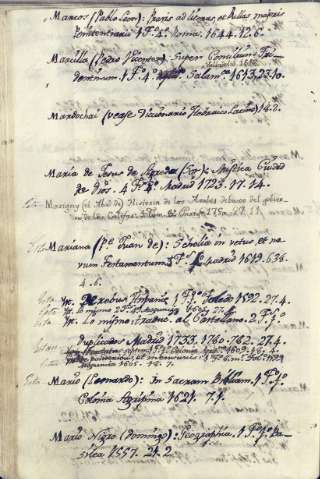 Marcos (Pablo Leon): Praxis ad literas, et Bullas majoris
Poenitentiarii 1 tº 4º: Roma. 1644. 12. 6.
Marcilla (Pedro Vicente): Super Concilium Tri-
dentinum. 1 tº 4º Salamª 1613. 23. 10.
Valladolid 1612.
Mardochai (vease Diccionario Hebraico Latino) 14. 2.
Maria de Jesus de Agreda (Sor): Mystica Ciudad
de Dios. 4 tº 4º Madrid 1723. 17. 14.
Marigny (el Abad de) Historia de los Arabes debaxo del gobier-
no de los Califas. 4 tom. 8º Paris 1750. 27. 11.
Mariana (Pe Juan de): Scholia in vetus et no-
vum Testamentum 1 tº fº Madrid 1619. 6 36.
4. 6.
Yt. De rebus Hispaniæ 1 tº fº Toledo 1592. 27. 4.
Yt. Lo mismo
Yt. Lo mismo traduc. al Castellano. 2 tº fº
duplicados Madrid 1733. 1780. 782. 27. 4.
1609. 16. 4.
Mario (Leonardo): In Sacram Bibliam. 1 tº fº
Colonia Agripina 1621. 7. 1.
Mario Nigro (Domingo): Geographia. 1 tº fº Ba-
silea 1557. 21. 2.